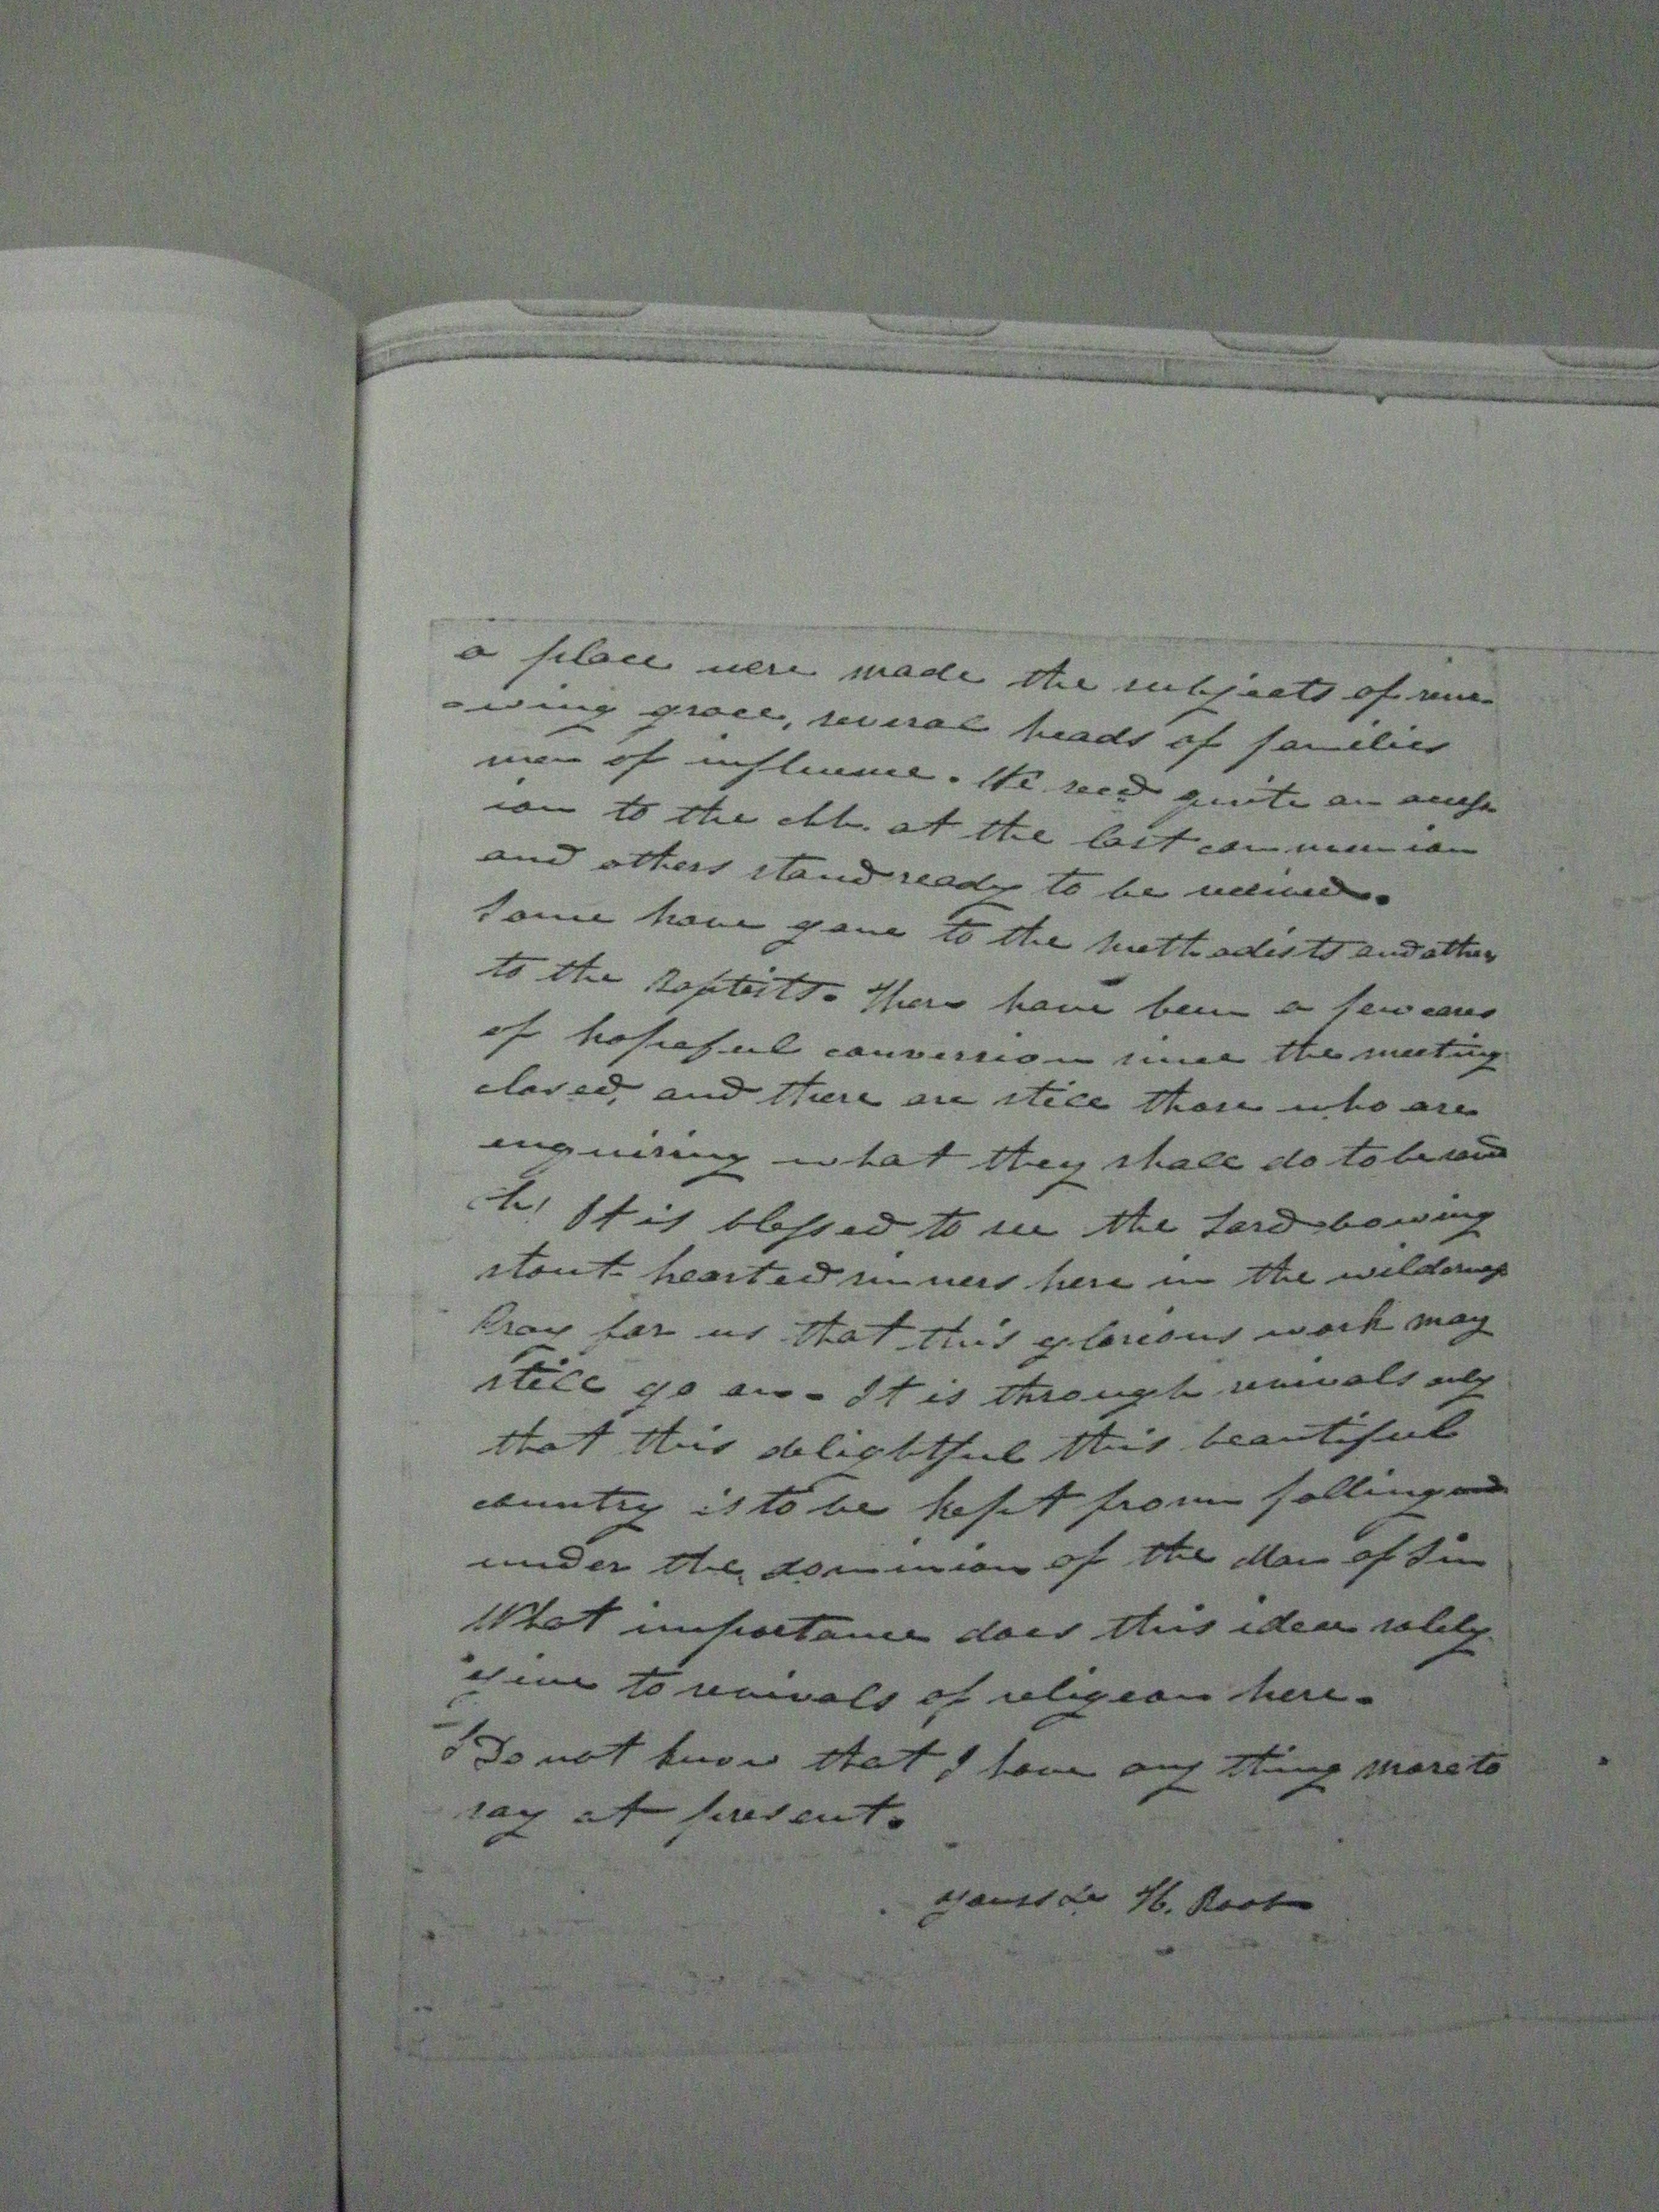 a place were made the subjects of rene-
-wing grace, several heads of families
men of influence. We recd quite an access
ion to the chh. at the last communion
and others stand ready to be received.
Some have gone to the Methodists and others
to the Baptists. There have been a few cases
of hopeful conversion since the meeting
closed, and there are still those who are
enquiring what they shall do to be saved
Oh! It is blessed to see the Lord bowing
stout hearted sinners here in the wilderness
Pray for us that this glorious work may
still go on. It is through revivals only
that this delightful this beautiful
country is to be kept from falling
under the dominion of the Man of Sin
What importance does this idea solely
give to revivals of religion here.
I Do not know that I have any thing more to
say at present.
yours &c H. Root